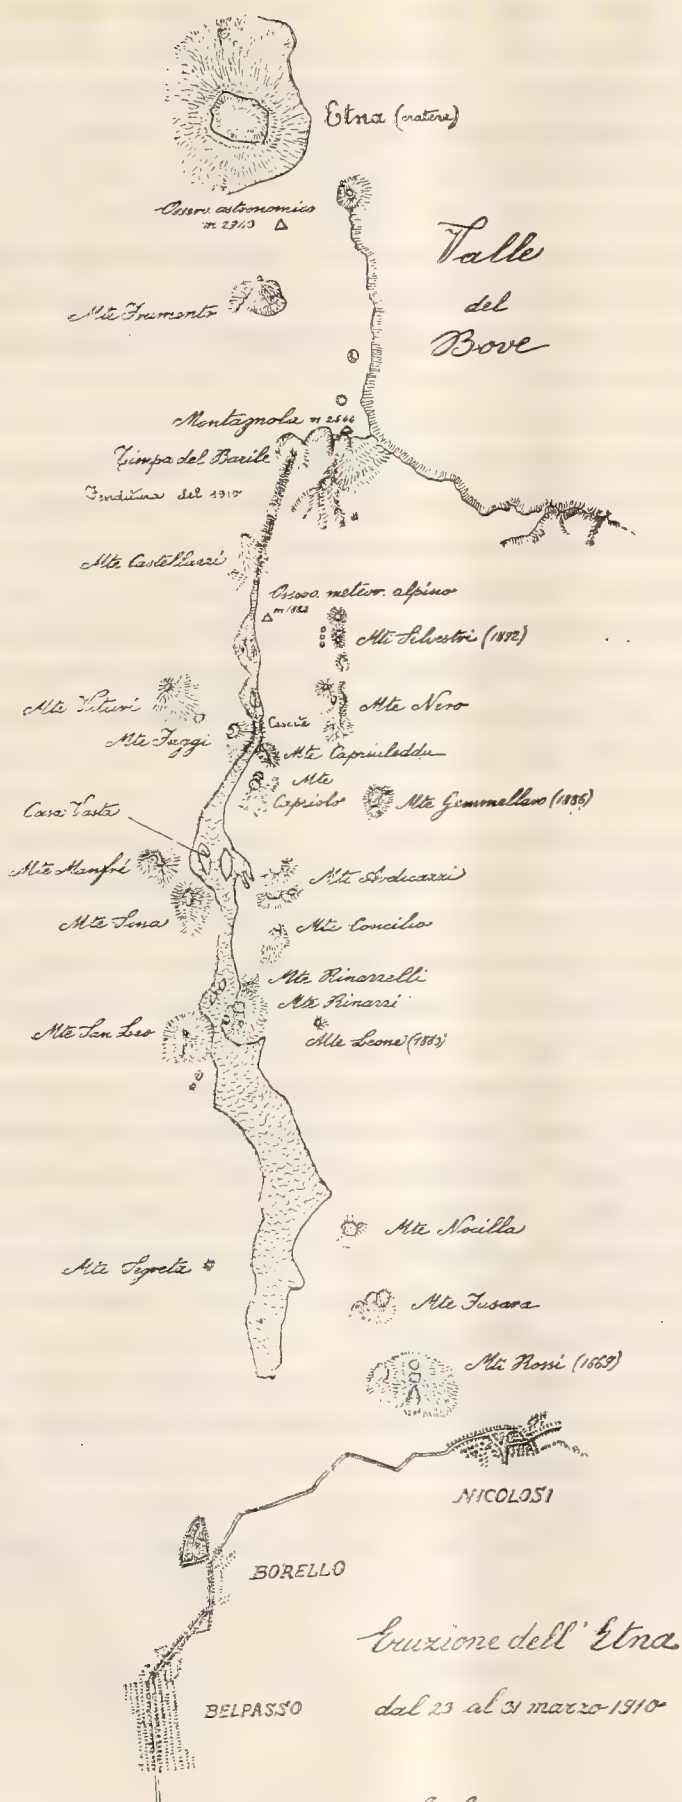 Etna (cratere)
Osserv. astronomico
Valle
del
Bove
Mte Frumento
Montagnola m 25
Timpa del Barile
Fenditura del 1910
Mte Castellazzi
Osserv. meteor. alpino
Mti Silvestri (1892)
Mte Vituri
Mte Nero
Mte Faggi
Mte
Capriolo
Mte Gemmellaro (1886)
Casa Vasta
Mte Manfré
Mte Ardicazzi
Mte Sona
Mte Concilio
Mte Rinazzelli
Mte Rinazzi
Mte San Leo
Mte Leone (1883)
Mte Nocilla
Mte Segreta
Mte Fusara
Mti Rossi (1669)
NICOLOSI
BORELLO
Eruzione dell' Etna
BELPASSO
dal 23 al 31 marzo 1910